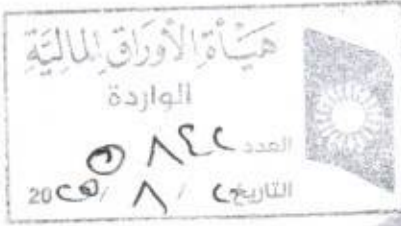 هيأة الأوراق المالية
الواردة
العدد ٨٤٢
التاريخ ٢ / ٨ / 20٢٥